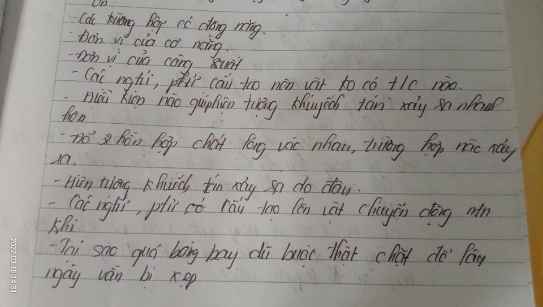 - Các trường hợp có động năng.
- Đơn vị của cơ năng.
- Đơn vị của công suất
- Các ngtử, ptử cấu tạo nên vật ko có t/c nào.
- Điều kiện nào giúp hiện tượng khuyếch tán xảy ra nhanh
hơn
- Đổ hỗn hợp chất lỏng vào nhau, trường hợp nào xảy
ra.
- Hiện tượng khuếch tán xảy ra do đâu.
- Các ngtử, ptử có cấu tạo lên vật chuyển động ntn
khi
- Tại sao quả bóng bay dù buộc thật chặt để lâu
ngày vẫn bị xẹp